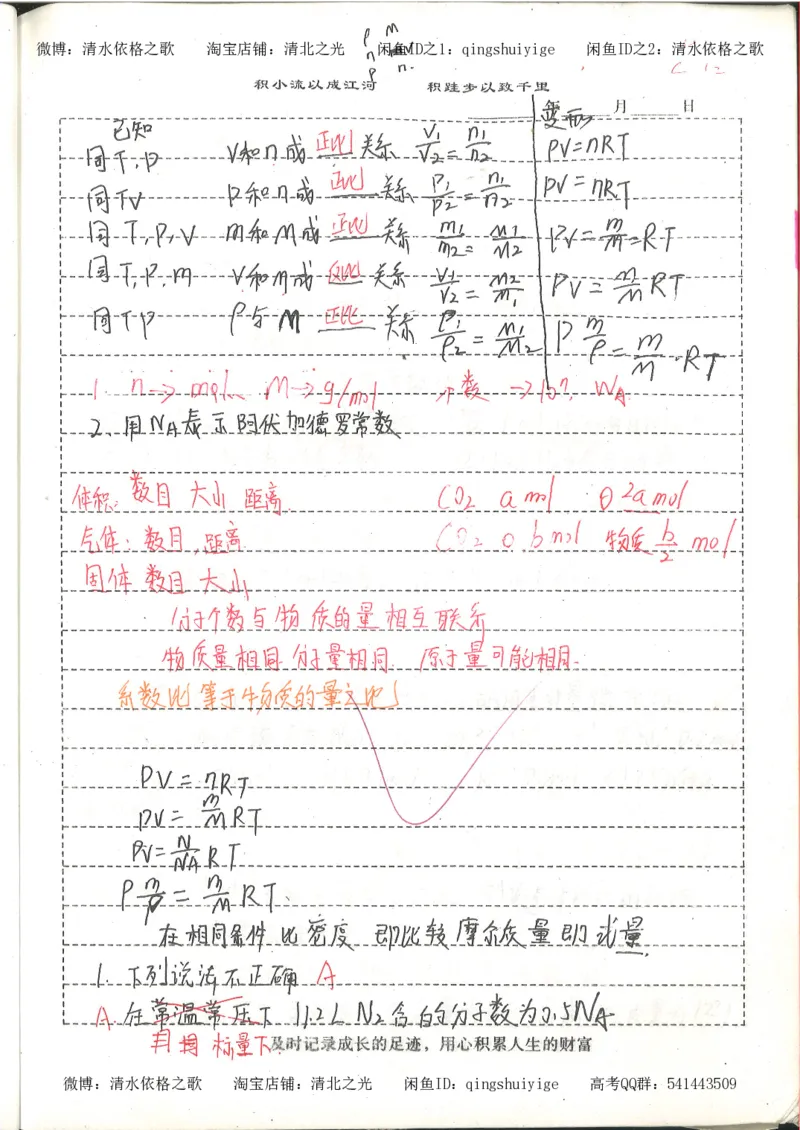 微博：清水依格之歌 淘宝店铺：清北之光 闲鱼ID之1：qingshuiyige 闲鱼ID之2：清水依格之歌
积小流以成江河 积跬步以致千里
月 日
已知 变形
同T,P V和n成正比关系 V₁/V₂=n₁/n₂ PV=nRT
同TV P和n成正比关系 P₁/P₂=n₁/n₂ PV=nRT
同T,P,V m和M成正比关系 m₁/m₂=M₁/M₂ PV=m/M=RT
同T,P,m V和M成反比关系 V₁/V₂=M₂/M₁ PV=m/M RT
同TP ρ与M正比关系 ρ₁/ρ₂=M₁/M₂ P m/ρ=m/M·RT
1. n→mol、M→g/mol 个数 →
2、用NA表示阿伏加德罗常数
体积：数目 大小 距离 CO₂ a mol 2a mol
气体：数目,距离 CO₂ O b mol 物质 b/2 mol
固体 数目 大小
分子个数与物质的量相互联系
物质量相同 分子量相同 原子量可能相同.
系数比等于物质的量之比
PV=nRT
PV=m/M RT
PV=N/NA RT
P m/ρ=m/M RT.
在相同条件比密度 即比较摩尔质量即式量
1. 下列说法不正确 A
A. 在常温常压下 11.2L N₂含的分子数为0.5NA
标量下
及时记录成长的足迹，用心积累人生的财富
微博：清水依格之歌 淘宝店铺：清北之光 闲鱼ID：qingshuiyige 高考QQ群：541443509